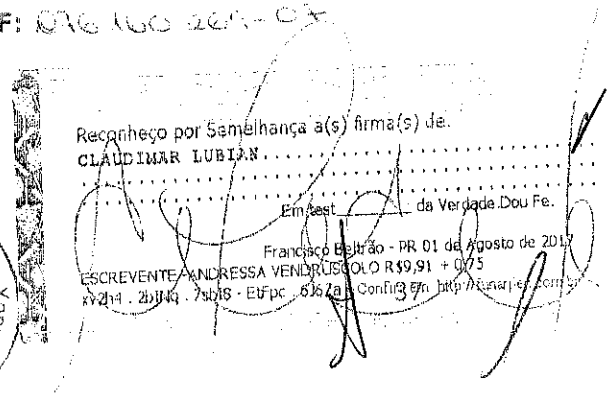 F: 076 160 269-07
Reconheço por Semelhança a(s) firma(s) de:
CLAUDIMAR LUBIAN
Em test da Verdade.Dou Fe.
Francisco Beltrão - PR 01 de Agosto de 2017
ESCREVENTE ANDRESSA VENDRUSCOLO R$9,91 + 0,75
Confira em http://funarpen.com.br
37